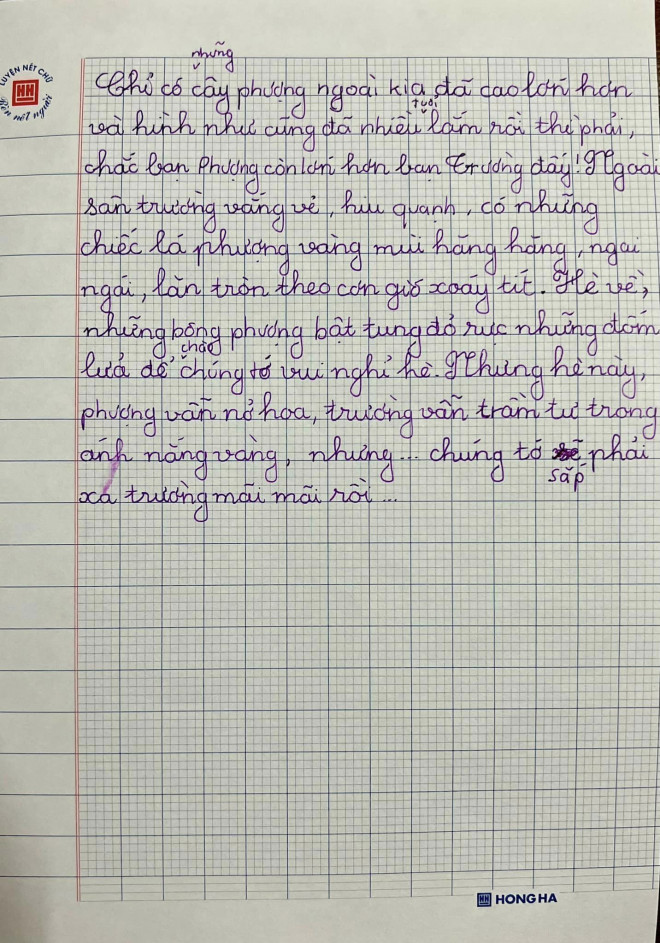 LUYỆN NÉT CHỮ
HH
Rèn nết người
những
Chỉ có cây phượng ngoài kia đã cao lớn hơn
tuổi
và hình như cũng đã nhiều lắm rồi thì phải,
chắc bạn Phượng còn lớn hơn bạn Trường đấy! Ngoài
sân trường vắng vẻ, hiu quạnh, có những
chiếc lá phượng vàng mùi hăng hăng, ngai
ngái, lăn tròn theo cơn gió xoáy tít. Hè về,
những bông phượng bật tung đỏ rực những đốm
chào
lửa để chúng tớ vui nghỉ hè. Nhưng hè này,
phượng vẫn nở hoa, trường vẫn trầm tư trong
ánh nắng vàng, nhưng... chúng tớ sẽ phải
sắp
xa trường mãi mãi rồi...
HH HONG HA